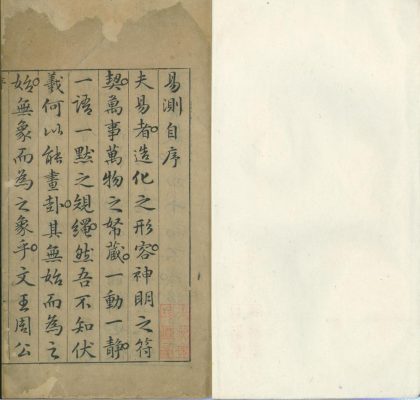 易測自序
夫易者造化之形容神明之符
契萬事萬物之帑藏一動一静
一語一默之規繩然吾不知伏
羲何以能畫卦其無始而為之
始無象而為之象乎文王周公